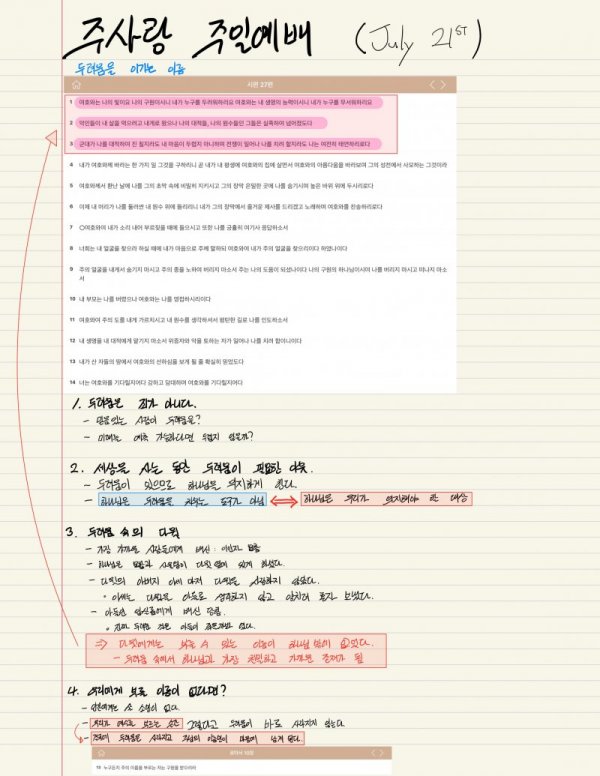 주사랑 주일예배 (July 21st)
두려움을 이기는 이름
시편 27편
1 여호와는 나의 빛이요 나의 구원이시니 내가 누구를 두려워하리요 여호와는 내 생명의 능력이시니 내가 누구를 무서워하리요
2 악인들이 내 살을 먹으려고 내게로 왔으나 나의 대적들, 나의 원수들인 그들은 실족하여 넘어졌도다
3 군대가 나를 대적하여 진 칠지라도 내 마음이 두렵지 아니하며 전쟁이 일어나 나를 치려 할지라도 나는 여전히 태연하리로다
4 내가 여호와께 바라는 한 가지 일 그것을 구하리니 곧 내가 내 평생에 여호와의 집에 살면서 여호와의 아름다움을 바라보며 그의 성전에서 사모하는 그것이라
5 여호와께서 환난 날에 나를 그의 초막 속에 비밀히 지키시고 그의 장막 은밀한 곳에 나를 숨기시며 높은 바위 위에 두시리로다
6 이제 내 머리가 나를 둘러싼 내 원수 위에 들리리니 내가 그의 장막에서 즐거운 제사를 드리겠고 노래하며 여호와를 찬송하리로다
7 ○여호와여 내가 소리 내어 부르짖을 때에 들으시고 또한 나를 긍휼히 여기사 응답하소서
8 너희는 내 얼굴을 찾으라 하실 때에 내가 마음으로 주께 말하되 여호와여 내가 주의 얼굴을 찾으리이다 하였나이다
9 주의 얼굴을 내게서 숨기지 마시고 주의 종을 노하여 버리지 마소서 주는 나의 도움이 되셨나이다 나의 구원의 하나님이시여 나를 버리지 마시고 떠나지 마소
서
10 내 부모는 나를 버렸으나 여호와는 나를 영접하시리이다
11 여호와여 주의 도를 내게 가르치시고 내 원수를 생각하셔서 평탄한 길로 나를 인도하소서
12 내 생명을 내 대적에게 맡기지 마소서 위증자와 악을 토하는 자가 일어나 나를 치려 함이니이다
13 내가 산 자들의 땅에서 여호와의 선하심을 보게 될 줄 확실히 믿었도다
14 너는 여호와를 기다릴지어다 강하고 담대하며 여호와를 기다릴지어다
1. 두려움은 죄가 아니다.
- 믿음있는 사람이 두려움을?
- 미래는 예측 가능하다면 두렵지 않을까?
2. 세상을 사는 동안 두려움이 필요한 이유.
- 두려움이 있으므로 하나님을 의지하게 한다.
- 하나님은 두려움을 치우는 도구가 아님 ⟷ 하나님은 우리가 의지해야 할 대상
3. 두려움 속의 다윗
- 가장 가까운 사람들에게 배신:
- 하나님은 다윗
- 다윗의 아버지 이새 마저 다윗을
• 이새는 다윗을 아들로 않고 보냈다.
- 아들인 압살롬에게 배신 당함.
•
⇒ 다윗에게는 부를 수 있는 이름이 하나님 밖에 없었다.
- 두려움 속에서 하나님과 가장 친밀하고 가까운 존재가 됨
4. 우리에게 부를 이름이 없다면?
- 인간에게는 소망이 없다.
- 우리가 예수를 부르는 순간 그렇다고 두려움이 바로 사라지지 않는다.
- 두려움은 사라지고 주님의 이름만이 마음에 남게 된다.
로마서 10장
13 누구든지 주의 이름을 부르는 자는 구원을 받으리라